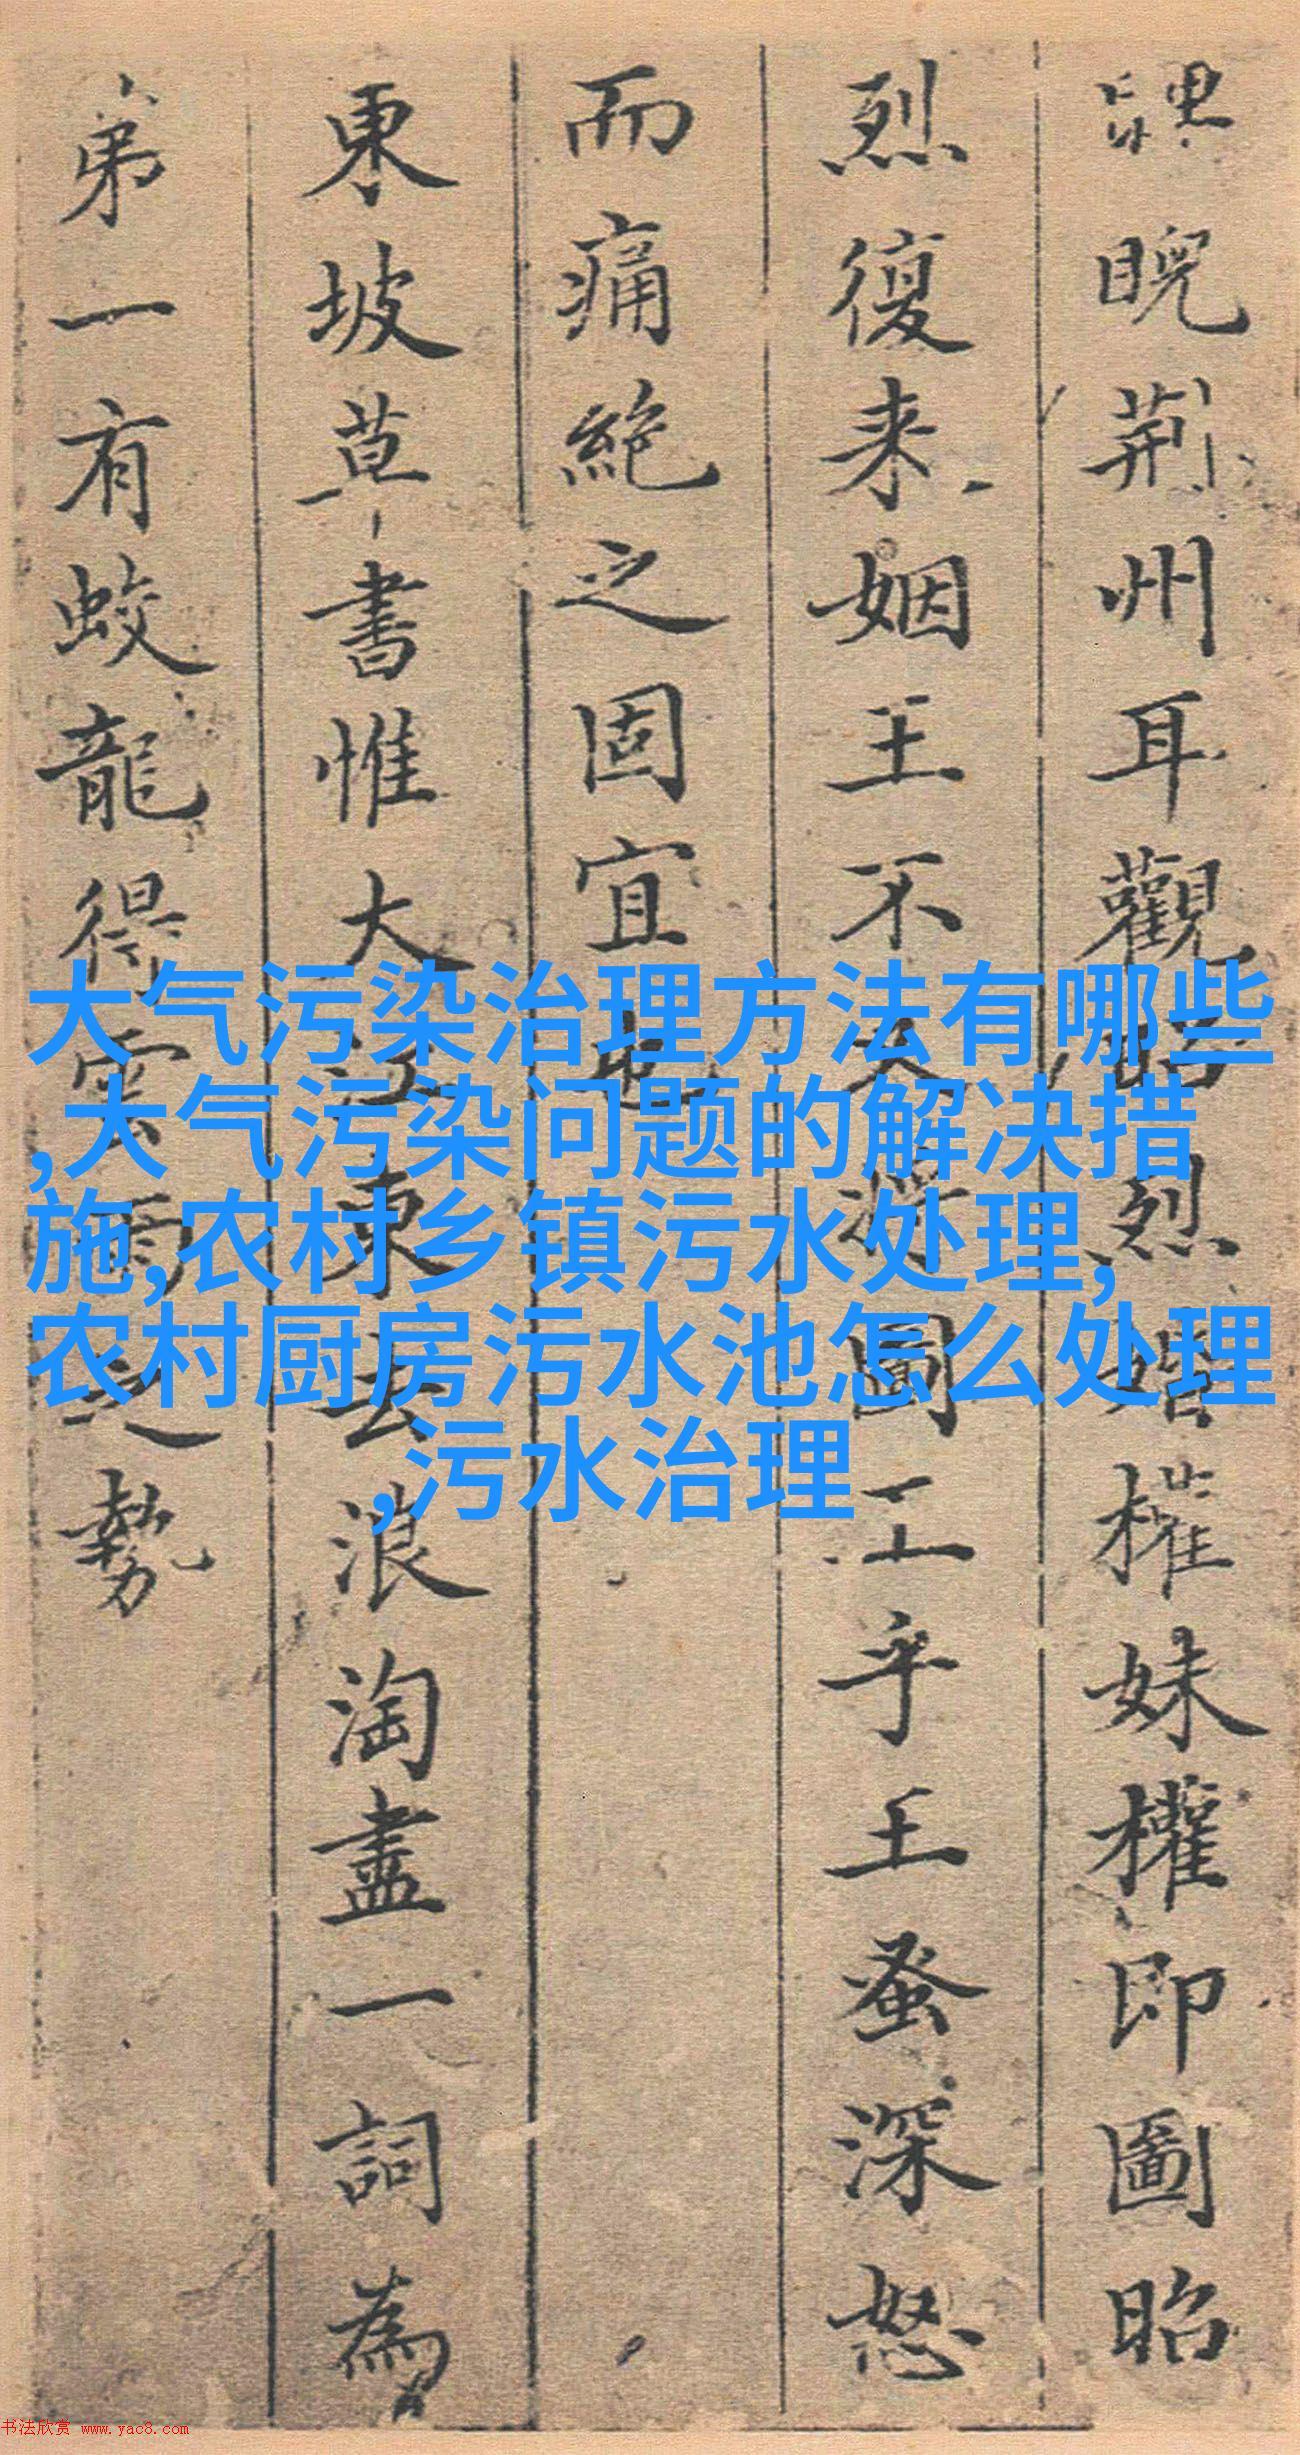 睨荆州耳觀昭烈婚權妹權即圖昭
烈復来姻王不圖王乎王蚤深怒
而痛絶之固宜也
東坡草書惟大江東去浪淘盡一詞為
弟一有蛟龍得雲雨之勢
大气污染治理方法有哪些
,大气污染问题的解决措
施,农村乡镇污水处理,
农村厨房污水池怎么处理
,污水治理
书法欣赏 www.yac8.com